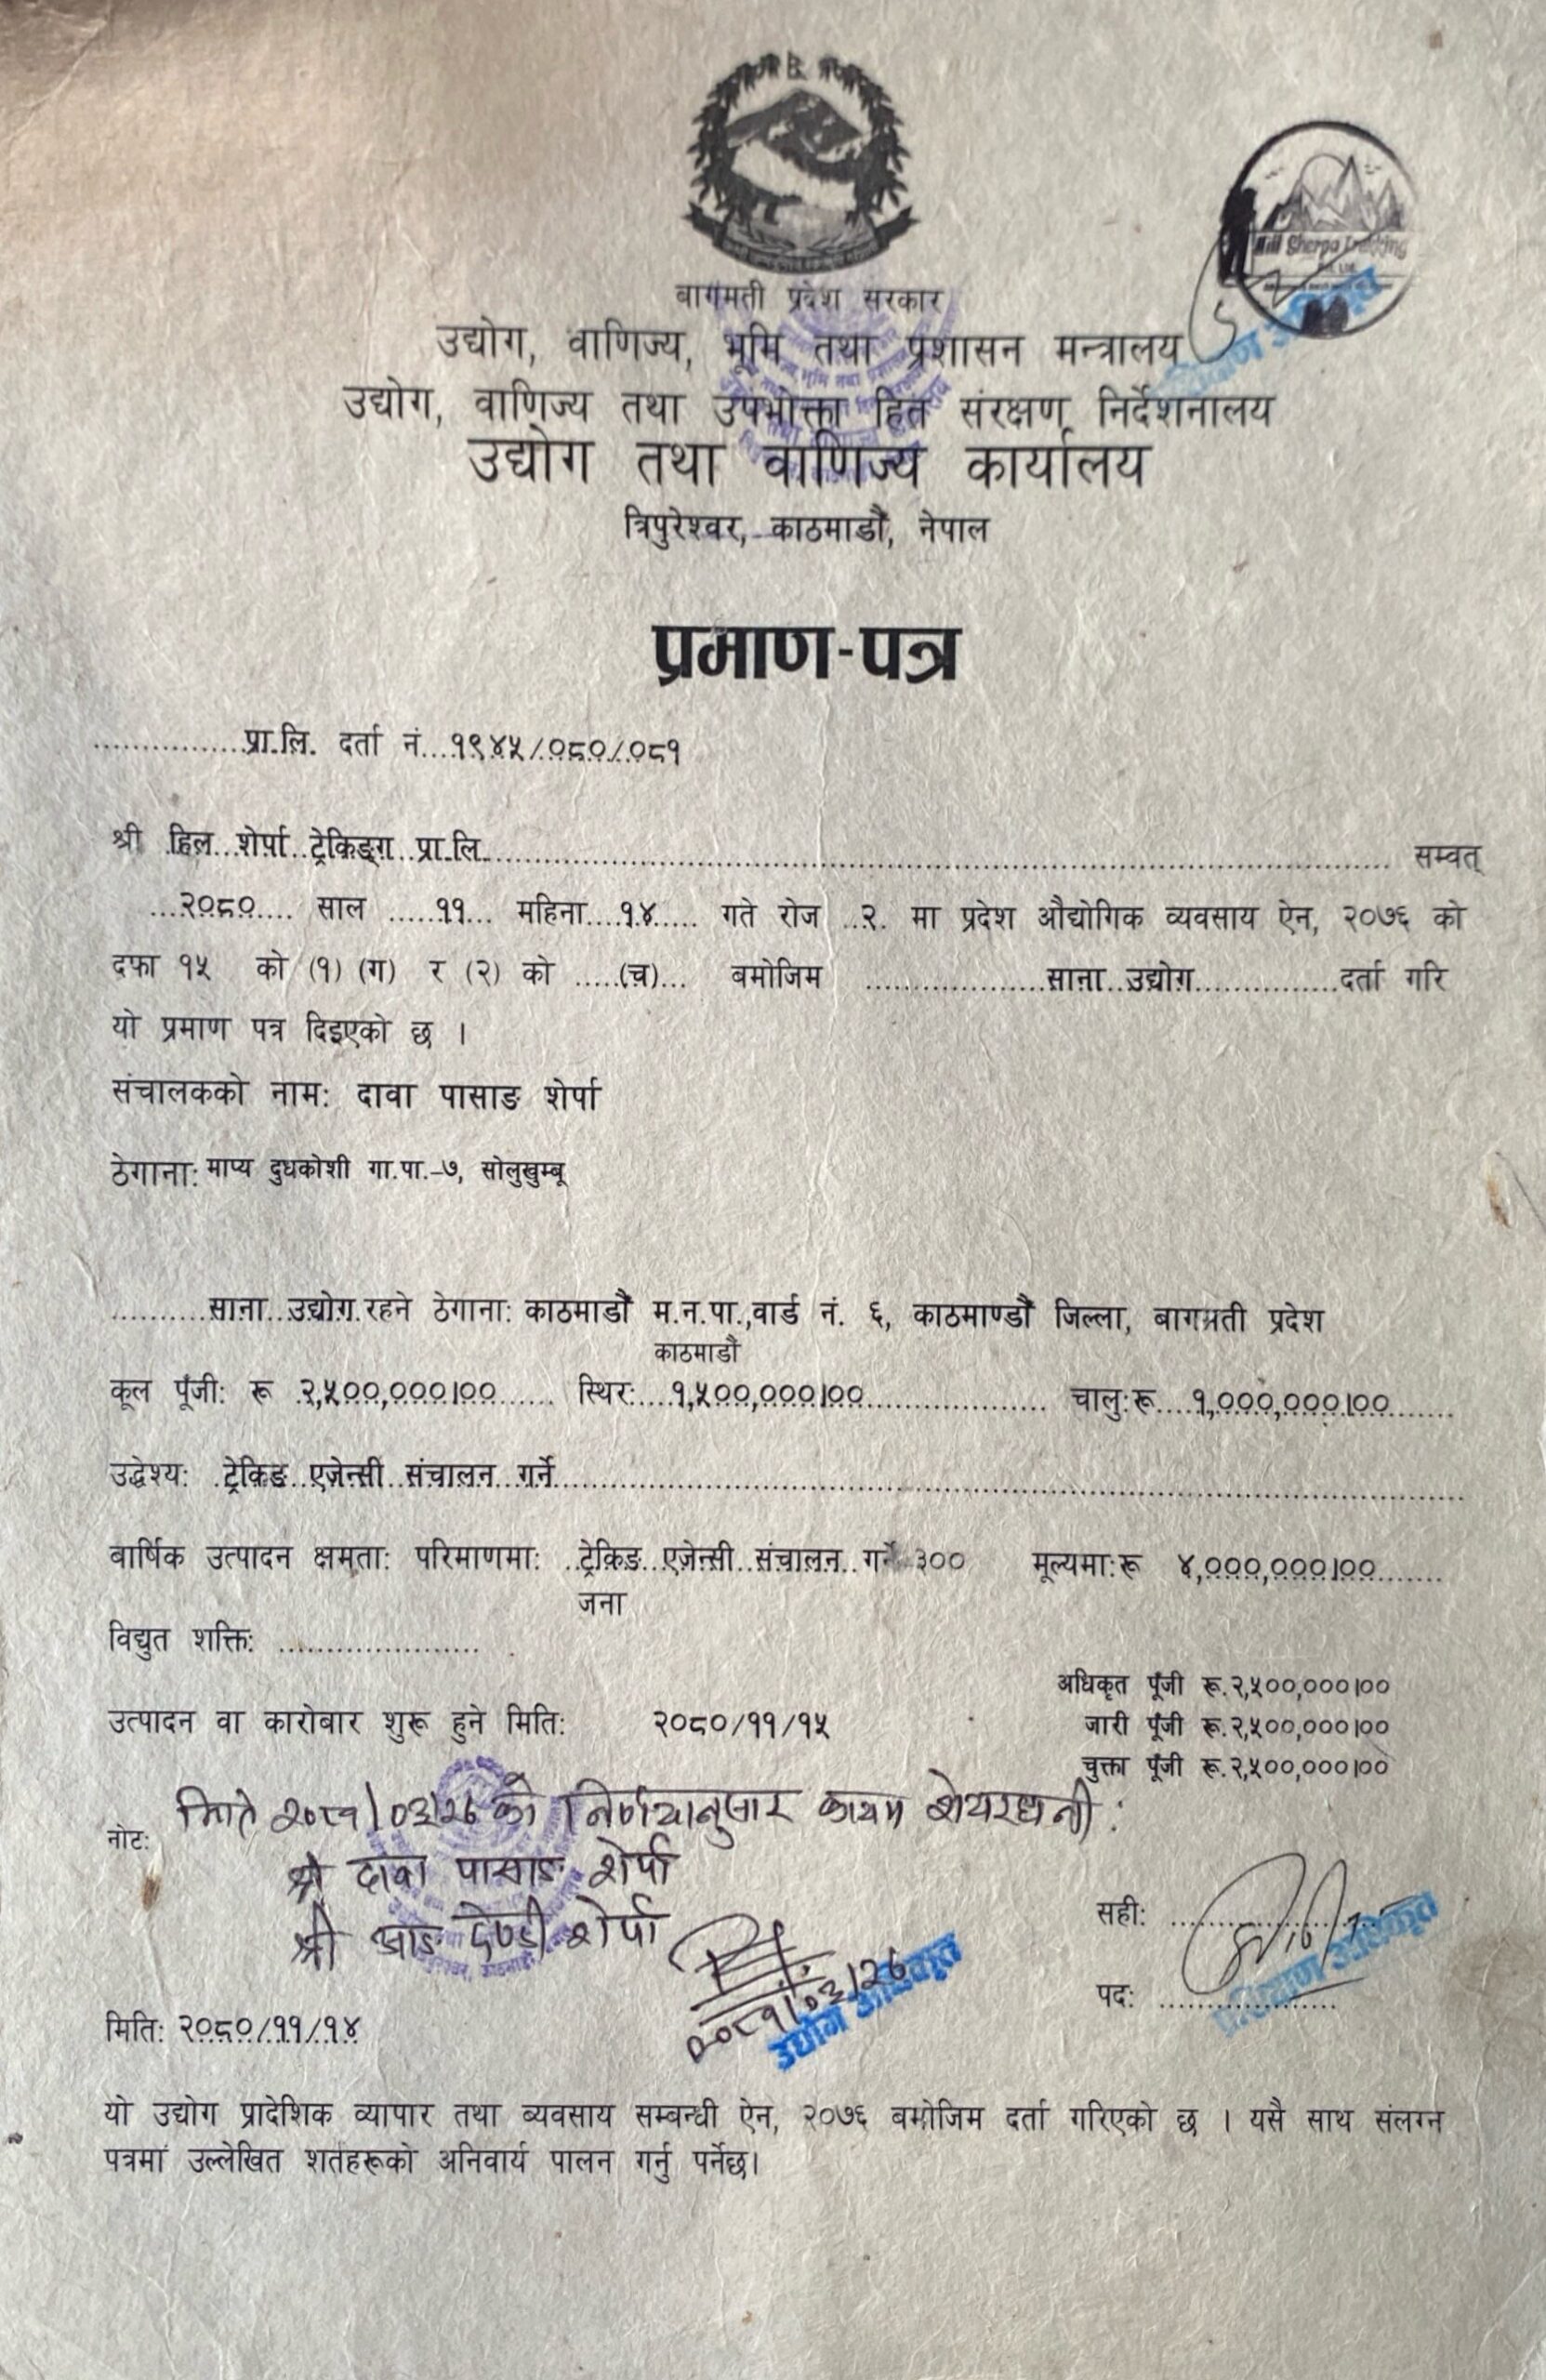 Hill Sherpa Trekking
बागमती प्रदेश सरकार
उद्योग, वाणिज्य, भूमि तथा प्रशासन मन्त्रालय
उद्योग, वाणिज्य तथा उपभोक्ता हित संरक्षण निर्देशनालय
उद्योग तथा वाणिज्य कार्यालय
त्रिपुरेश्वर, काठमाडौं, नेपाल
प्रमाण-पत्र
................प्रा.लि. दर्ता नं...१९४५/०८०/०८१
श्री हिल शेर्पा ट्रेकिङ्ग प्रा.लि. सम्वत्
...२०८०.... साल .....११... महिना....१४..... गते रोज ..२. मा प्रदेश औद्योगिक व्यवसाय ऐन, २०७६ को
दफा १५ को (१) (ग) र (२) को .....(च)... बमोजिम ....................साना उद्योग................दर्ता गरि
यो प्रमाण पत्र दिइएको छ ।
संचालकको नाम: दावा पासाङ शेर्पा
ठेगाना: माप्य दुधकोशी गा.पा.-७, सोलुखुम्बू
..........साना उद्योग रहने ठेगाना: काठमाडौं म.न.पा.,वार्ड नं. ६, काठमाण्डौं जिल्ला, बागमती प्रदेश
काठमाडौं
कूल पूँजी: रू २,५००,०००|०० ...... स्थिर: १,५००,०००|०० .................... चालु: रू....१,०००,०००|०० .......
उद्धेश्य: ट्रेकिङ एजेन्सी संचालन गर्ने
बार्षिक उत्पादन क्षमता: परिमाणमा: ट्रेकिङ एजेन्सी संचालन गर्ने ३०० मूल्यमा: रू ४,०००,०००|०० .......
जना
विद्युत शक्ति: ......................
अधिकृत पूँजी रू.२,५००,०००|००
उत्पादन वा कारोबार शुरू हुने मिति: २०८०/११/१५
जारी पूँजी रू.२,५००,०००|००
चुक्ता पूँजी रू.२,५००,०००|००
मिति २०८१/०३/२६ को निर्णयानुसार कायम शेयरधनी :
नोट:
श्री दावा पासाङ शेर्पा
श्री आङ देण्डी शेर्पा
सही: ....................
२०८१/०३/२६
उद्योग अधिकृत
पद: ....................
मिति: २०८०/११/१४
यो उद्योग प्रादेशिक व्यापार तथा ब्यवसाय सम्बन्धी ऐन, २०७६ बमोजिम दर्ता गरिएको छ । यसै साथ संलग्न
पत्रमा उल्लेखित शर्तहरूको अनिवार्य पालन गर्नु पर्नेछ।